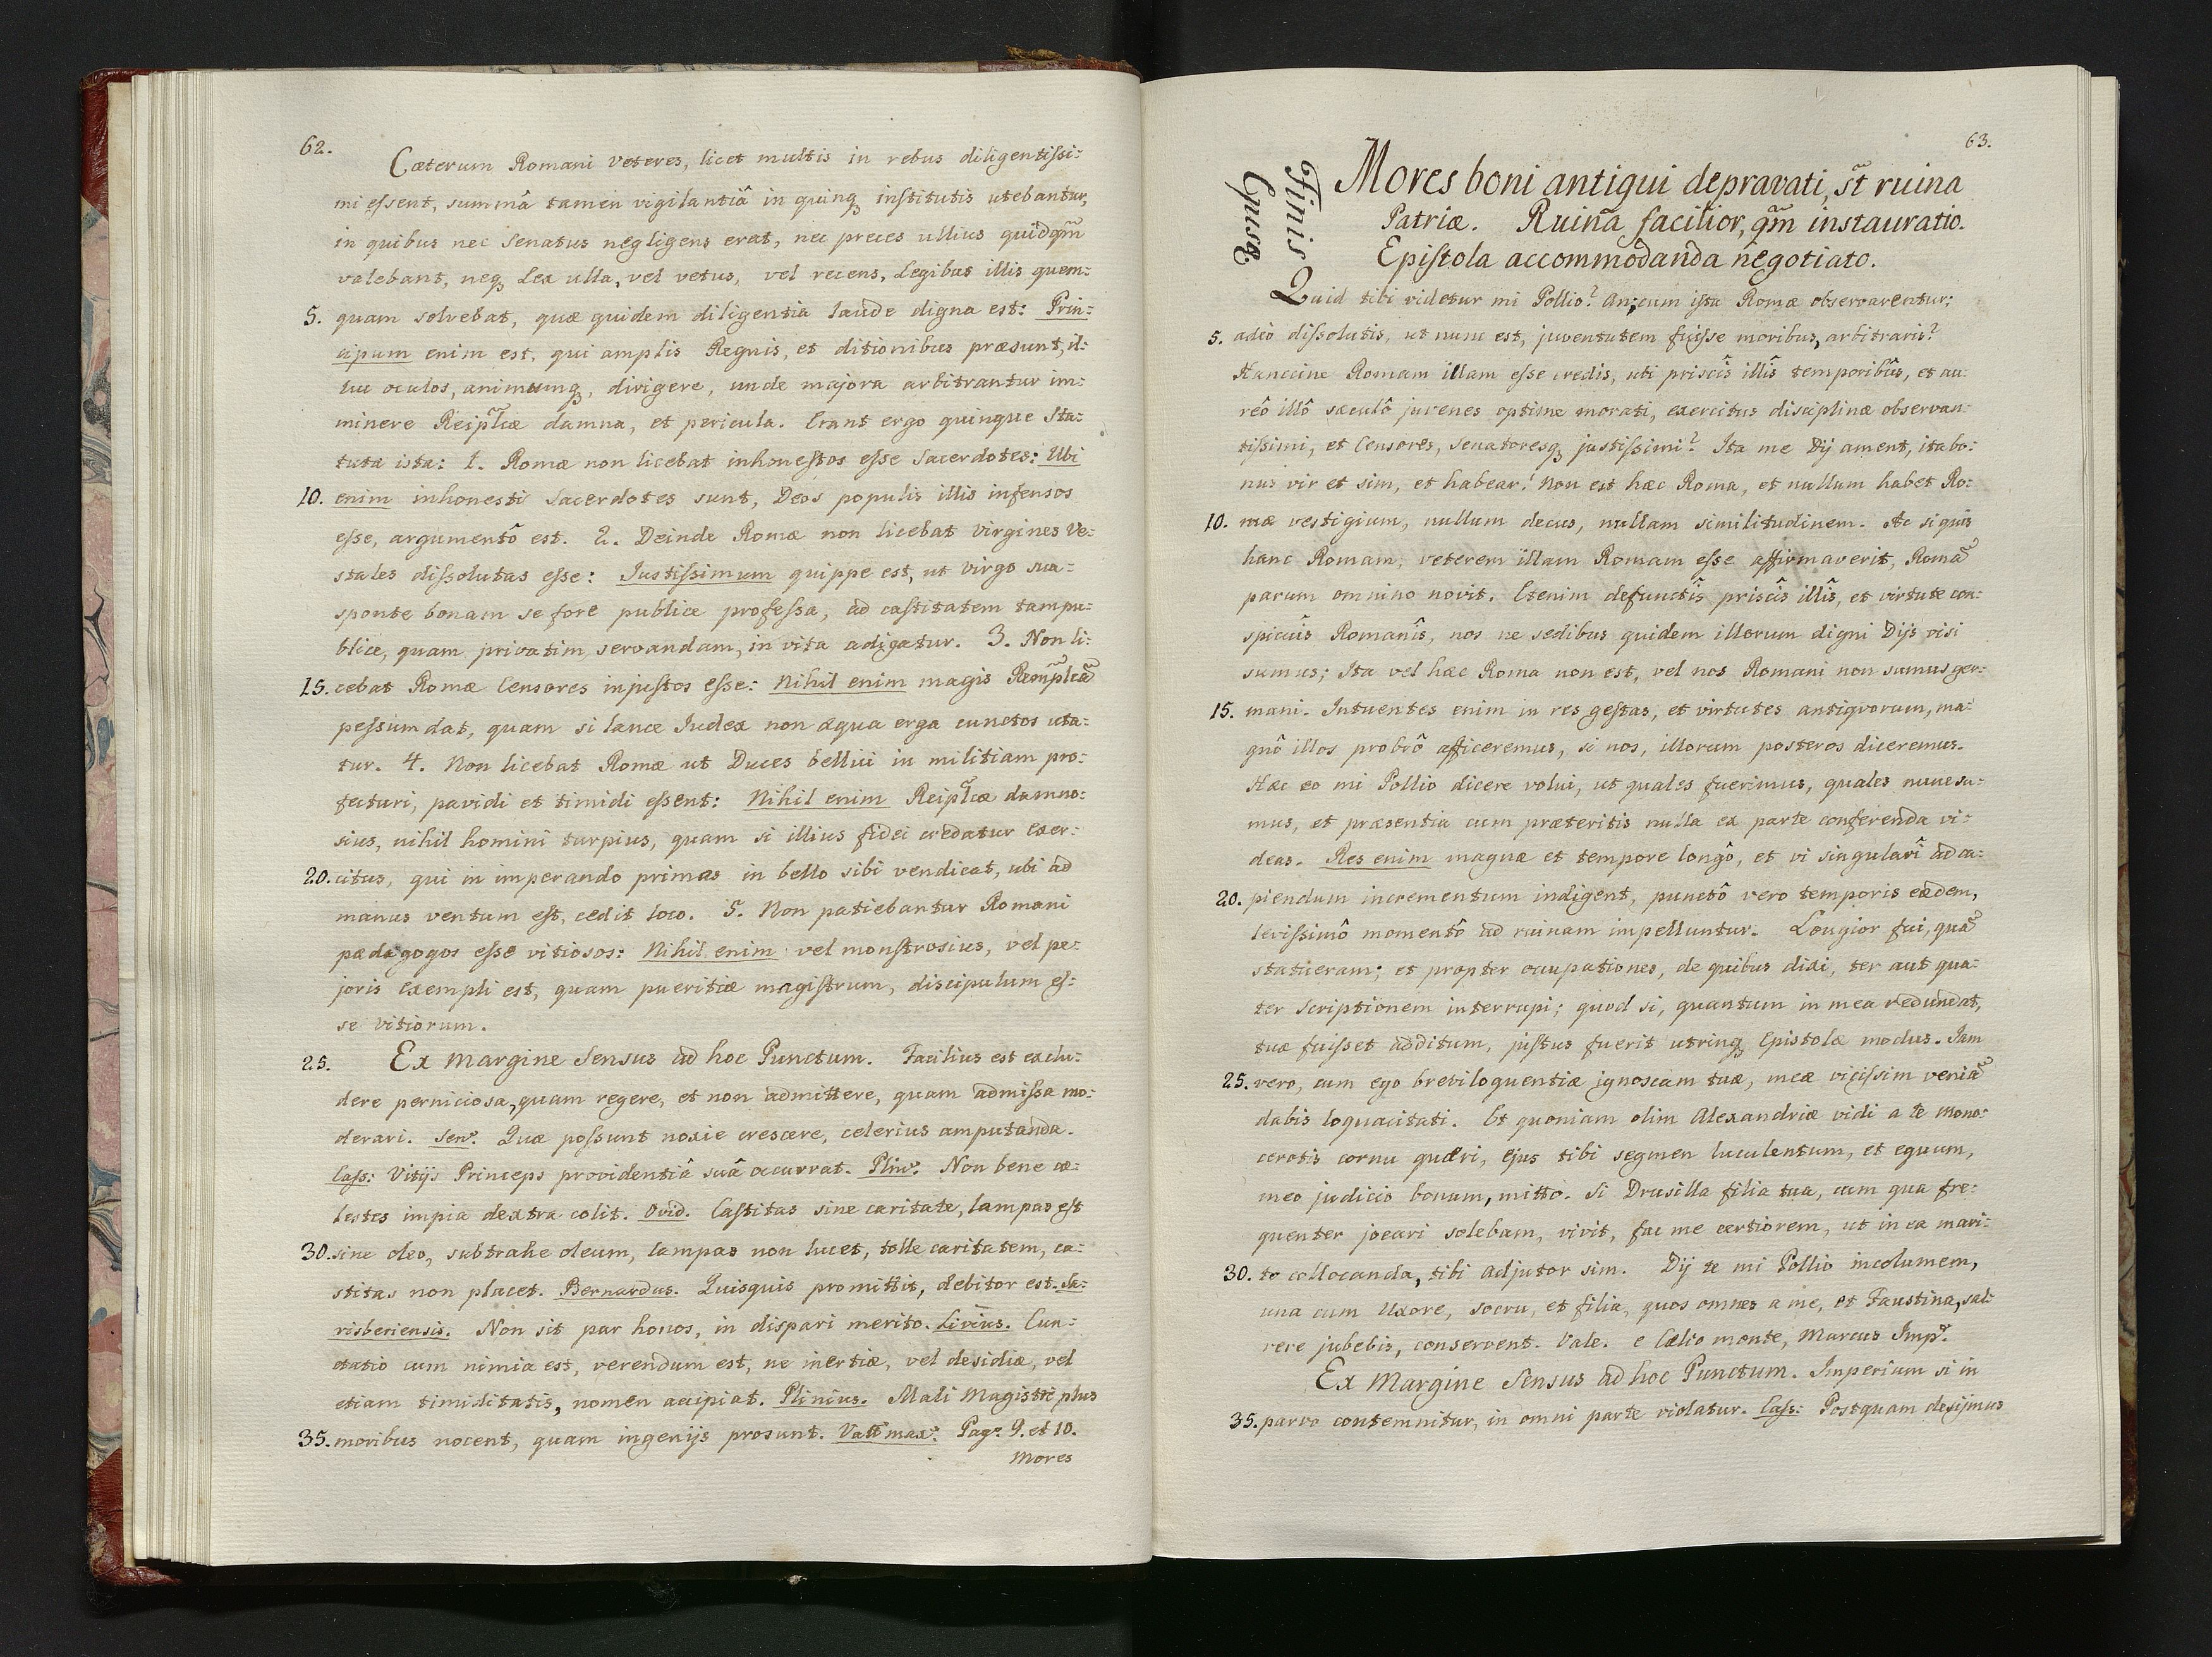 62.
Cæterum Romani veteres, licet multis in rebus diligentissi:
mi essent, summâ tamen vigilantiâ in quinq₃ institutis utebantur,
in quibus nec Senatus negligens erat, nec preces ullius quidqm̃
valebant, neq₃ Lex ulla, vel vetus, vel recens, Legibus illis quem:
5. quam solvebat, quæ quidem diligentia laude digna est: Prin:
cipum enim est, qui amplis Regnis, et ditionibus præsunt, il:
luc oculos, animumq₃, dirigere, unde majora arbitrantur im:
minere Reiplc̃æ damna, et pericula. Erant ergo quinque Sta:
tuta ista: 1. Romæ non licebat inhonestos esse Sacerdotes: Ubi
10. enim inhonesti Sacerdotes sunt, Deos populis illis infensos
esse, argumentô est. 2. Deinde Romæ non licebat Virgines Ve:
stales dissolutas esse: Iustissimum quippe est, ut Virgo sua:
sponte bonam se fore publice professa, ad castitatem tam pu:
blice, quam privatim, servandam, in vita adigatur. 3. Non li:
15. cebat Romæ Censores injustos esse: Nihil enim magis Remplcã
pessum dat, quam si lance Iudex non æqua erga cunctos uta:
tur. 4. Non licebat Romæ ut Duces bellici in militiam pro:
fecturi, pavidi et timidi essent: Nihil enim Reiplc̃æ damno:
sius, nihil homini turpius, quam si illius fidei credatur Exer:
20. citus, qui in imperando primas in bello sibi vendicat, ubi ad
manus ventum est, cedit loco. 5. Non patiebantur Romani
pædagogos esse vitiosos: Nihil enim vel monstrosius, vel pe:
joris Exempli est, quam pueritiæ magistrum, discipulum es:
se vitiorum.
25. Ex Margine Sensus ad hoc Punctum. Facilius est exclu:
dere perniciosa, quam regere, et non admittere, quam admissa mo:
derari. Sen: Quæ possunt noxie crescere, celerius amputanda.
Cass: Vitijs Princeps providentiâ suâ occurrat. Plin: Non bene cæ:
lestes impia dextra colit. Ovid. Castitas sine caritate, lampas est
30. sine oleo, subtrahe oleum, lampas non lucet, tolle caritatem, ca:
stitas non placet. Bernardus. Quisquis promittit, debitor est. Sa:
risberiensis. Non sit par honos, in dispari merito. Livius. Cun:
ctatio cum nimia est, verendum est, ne inertiæ, vel desidiæ, vel
etiam timiditatis, nomen accipiat. Plinius. Mali Magistri plus
35. moribus nocent, quam ingenijs prosunt. Vall max: Pag: 9. et 10.
Mores
63.
Finis
Epusq
Mores boni antiqui depravati, st̃ ruina
Patriæ. Ruina facilior, qm̃ instauratio.
Epistola accommodanda negotiato.
Quid tibi videtur mi Pollio? An, cum ista Romæ observarentur,
5. adeò dissolutis, ut nunc est, juventutem fuisse moribus, arbitraris?
Hanccine Romam illam esse credis, uti priscîs illîs temporibûs, et au:
reô illô sæculô juvenes optime morati, exercitus disciplinæ observan:
tissimi, et Censores, senatoresq₃ justissimi? Ita me Dij ament, ita bo:
nus vir et sim, et habear! Non est hæc Roma, et nullum habet Ro:
10. mæ vestigium, nullum decus, nullam similitudinem. Ac si quis
hanc Romam, veterem illam Romam esse affirmaverit, Romã
parum omnino novit. Etenim defunctîs priscîs illîs, et virtute con:
spicuîs Romanîs, nos ne sedibus quidem illorum digni Dijs visi
sumus; Ita vel hæc Roma non est, vel nos Romani non sumus ger:
15. mani. Intuentes enim in res gestas, et virtutes antiquorum, ma:
gnô illos probrô afficeremus, si nos, illorum posteros diceremus.
Hæc eo mi Pollio dicere volui, ut quales fuerimus, quales nunc su:
mus, et præsentia cum præteritis nulla ex parte conferenda vi:
deas. Res enim magnæ et tempore longô, et vi singularî ad ca:
20. piendum incrementum indigent, punctô vero temporis eædem,
levissimô momentô ad ruinam impelluntur. Longior fui, quã
statueram; et propter occupationes, de quibus dixi, ter aut qua:
ter scriptionem interrupi; quod si, quantum in mea redundat,
tuæ fuisset additum, justus fuerit utrinq₃ Epistolæ modus. Iam
25. vero, cum ego breviloquentiæ ignoscam tuæ, meæ vicissim veniã
dabis loquacitati. Et quoniam olim Alexandriæ vidi a te Mono:
cerotis cornu quæri, ejus tibi segmen luculentum, et equum,
meo judicio bonum, mitto. Si Drusilla filia tua, cum qua fre:
quenter jocari solebam, vivit, fac me certiorem, ut in ea mari:
30. to collocanda, tibi adjutor sim. Dij te mi Pollio incolumem,
una cum Uxore, socru, et filia, quos omnes a me, et Faustina, sal:
vere jubebis, conservent. Vale. e Cælio monte, Marcus Impr̃.
Ex Margine Sensus ad hoc Punctum. Imperium si in
35. parvo contemnitur, in omni parte violatur. Cass: Postquam desijmus